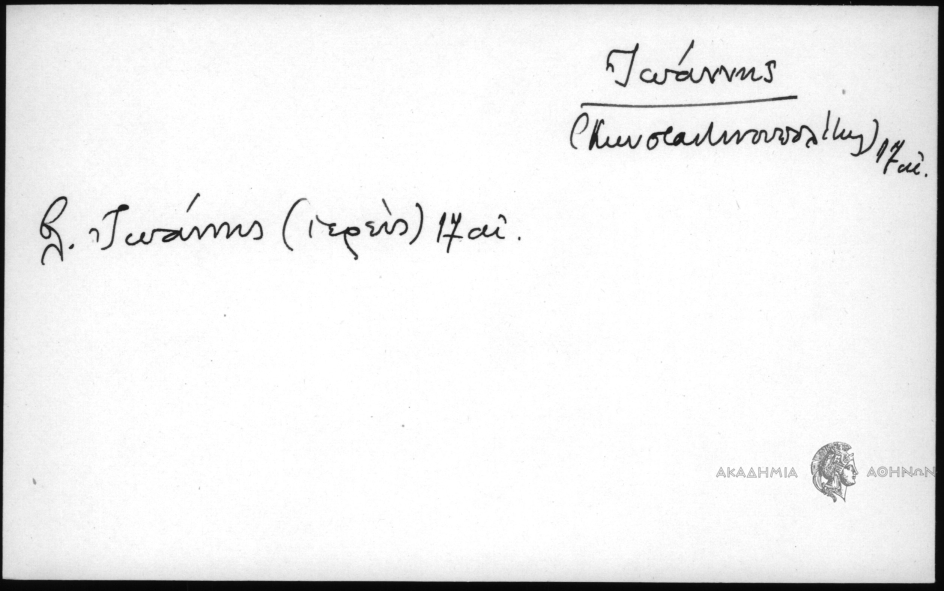 Ἰωάννης
(Κωνσταντινουπολίτης) 17 αἰ.
βλ. Ἰωάννης (ἱερεὺς) 17 αἰ.
ΑΚΑΔΗΜΙΑ ΑΘΗΝΩΝ